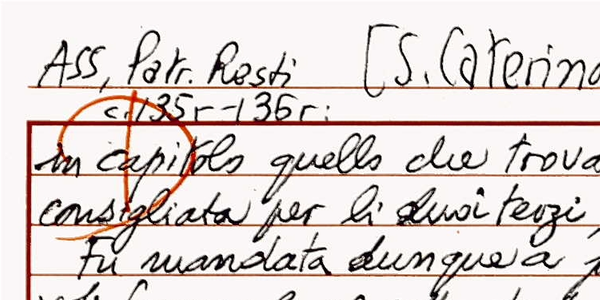 ASS, Patr. Resti [S. Caterina
c. 135r-136r:
in capitolo quello che trova
consigliata per li duoi terzi,
Fu mandata dunque a